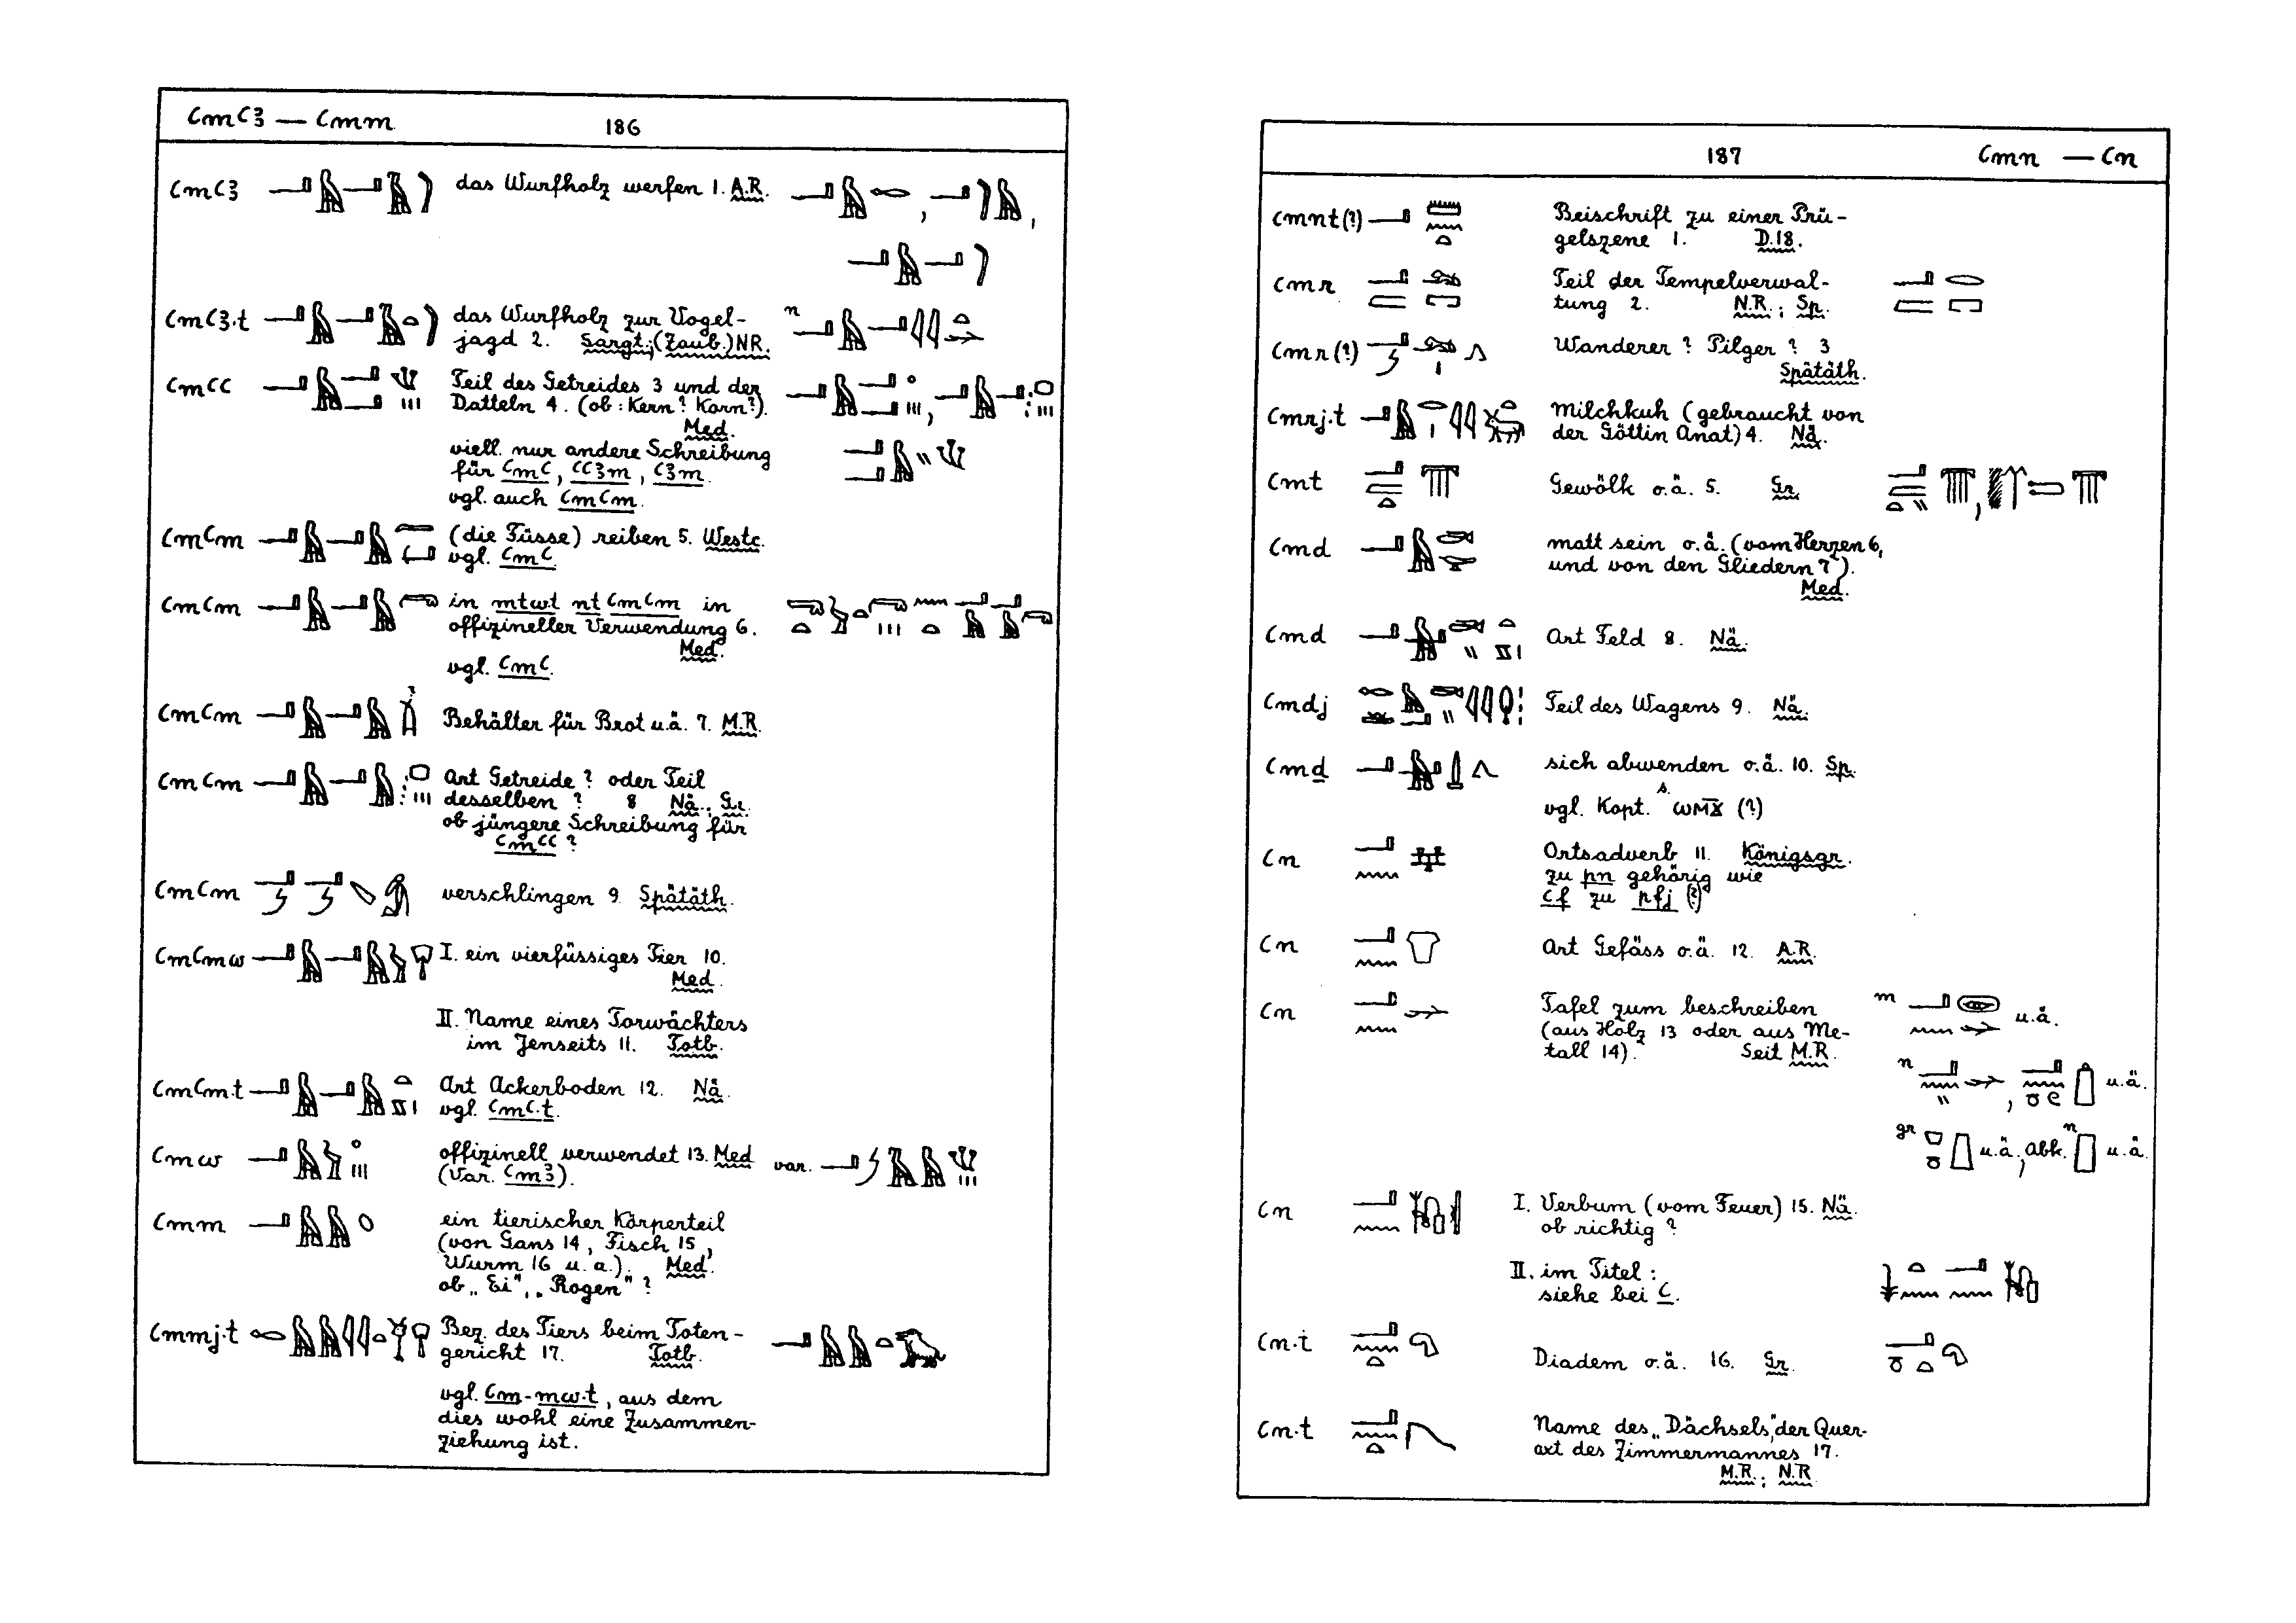 ꜥmꜥꜣ — ꜥmm 186
ꜥmꜥꜣ das Wurfholz werfen 1. A.R.
ꜥmꜥꜣ.t das Wurfholz zur Vogel-
jagd 2. Sargt.; (Zaub.) NR.
ꜥmꜥꜥ Teil des Getreides 3 und der
Datteln 4. (ob: Kern? Korn?).
Med.
viell. nur andere Schreibung
für ꜥmꜥ, ꜥꜥꜣm, ꜥꜣm.
vgl. auch ꜥmꜥm.
ꜥmꜥm (die Füsse) reiben 5. Westc.
vgl. ꜥmꜥ.
ꜥmꜥm in mtwt nt ꜥmꜥm in
offizineller Verwendung 6.
Med.
vgl. ꜥmꜥ.
ꜥmꜥm Behälter für Brot u.ä. 7. M.R.
ꜥmꜥm Art Getreide? oder Teil
desselben? 8 Nä.; Gr.
ob jüngere Schreibung für
ꜥmꜥꜥ?
ꜥmꜥm verschlingen 9. Spätäth.
ꜥmꜥmw I. ein vierfüssiges Tier 10.
Med.
II. Name eines Torwächters
im Jenseits 11. Totb.
ꜥmꜥm.t Art Ackerboden 12. Nä.
vgl. ꜥmꜥ.t.
ꜥmw offizinell verwendet 13. Med var.
(Var. ꜥmꜣ).
ꜥmm ein tierischer Körperteil
(von Gans 14, Fisch 15,
Wurm 16 u.a.). Med.
ob „Ei", „Rogen"?
ꜥmmj.t Bez. des Tiers beim Toten-
gericht 17. Totb.
vgl. ꜥm-mw.t, aus dem
dies wohl eine Zusammen-
ziehung ist.
187 ꜥmn — ꜥn
ꜥmnt(?) Beischrift zu einer Prü-
gelszene 1. D.18.
ꜥmr Teil der Tempelverwal-
tung 2. N.R.; Sp.
ꜥmr(?) Wanderer? Pilger? 3
Spätäth.
ꜥmrj.t Milchkuh (gebraucht von
der Göttin Anat) 4. Nä.
ꜥmt Gewölk o.ä. 5. Gr.
ꜥmd matt sein o.ä. (vom Herzen 6,
und von den Gliedern 7).
Med.
ꜥmd Art Feld 8. Nä.
ꜥmdj Teil des Wagens 9. Nä.
ꜥmḏ sich abwenden o.ä. 10. Sp.
vgl. Kopt. s. ⲱⲙϫ (?)
ꜥn Ortsadverb 11. Königsgr.
zu pn gehörig wie
ꜥf zu pfj (?)
ꜥn Art Gefäss o.ä. 12. A.R.
ꜥn Tafel zum beschreiben m u.ä.
(aus Holz 13 oder aus Me-
tall 14). Seit M.R.
n , u.ä.
gr u.ä., Abk. n u.ä.
ꜥn I. Verbum (vom Feuer) 15. Nä.
ob richtig?
II. im Titel:
siehe bei ꜥ.
ꜥn.t Diadem o.ä. 16. Gr.
ꜥn.t Name des „Dächsels", der Quer-
axt des Zimmermannes 17.
M.R.; N.R